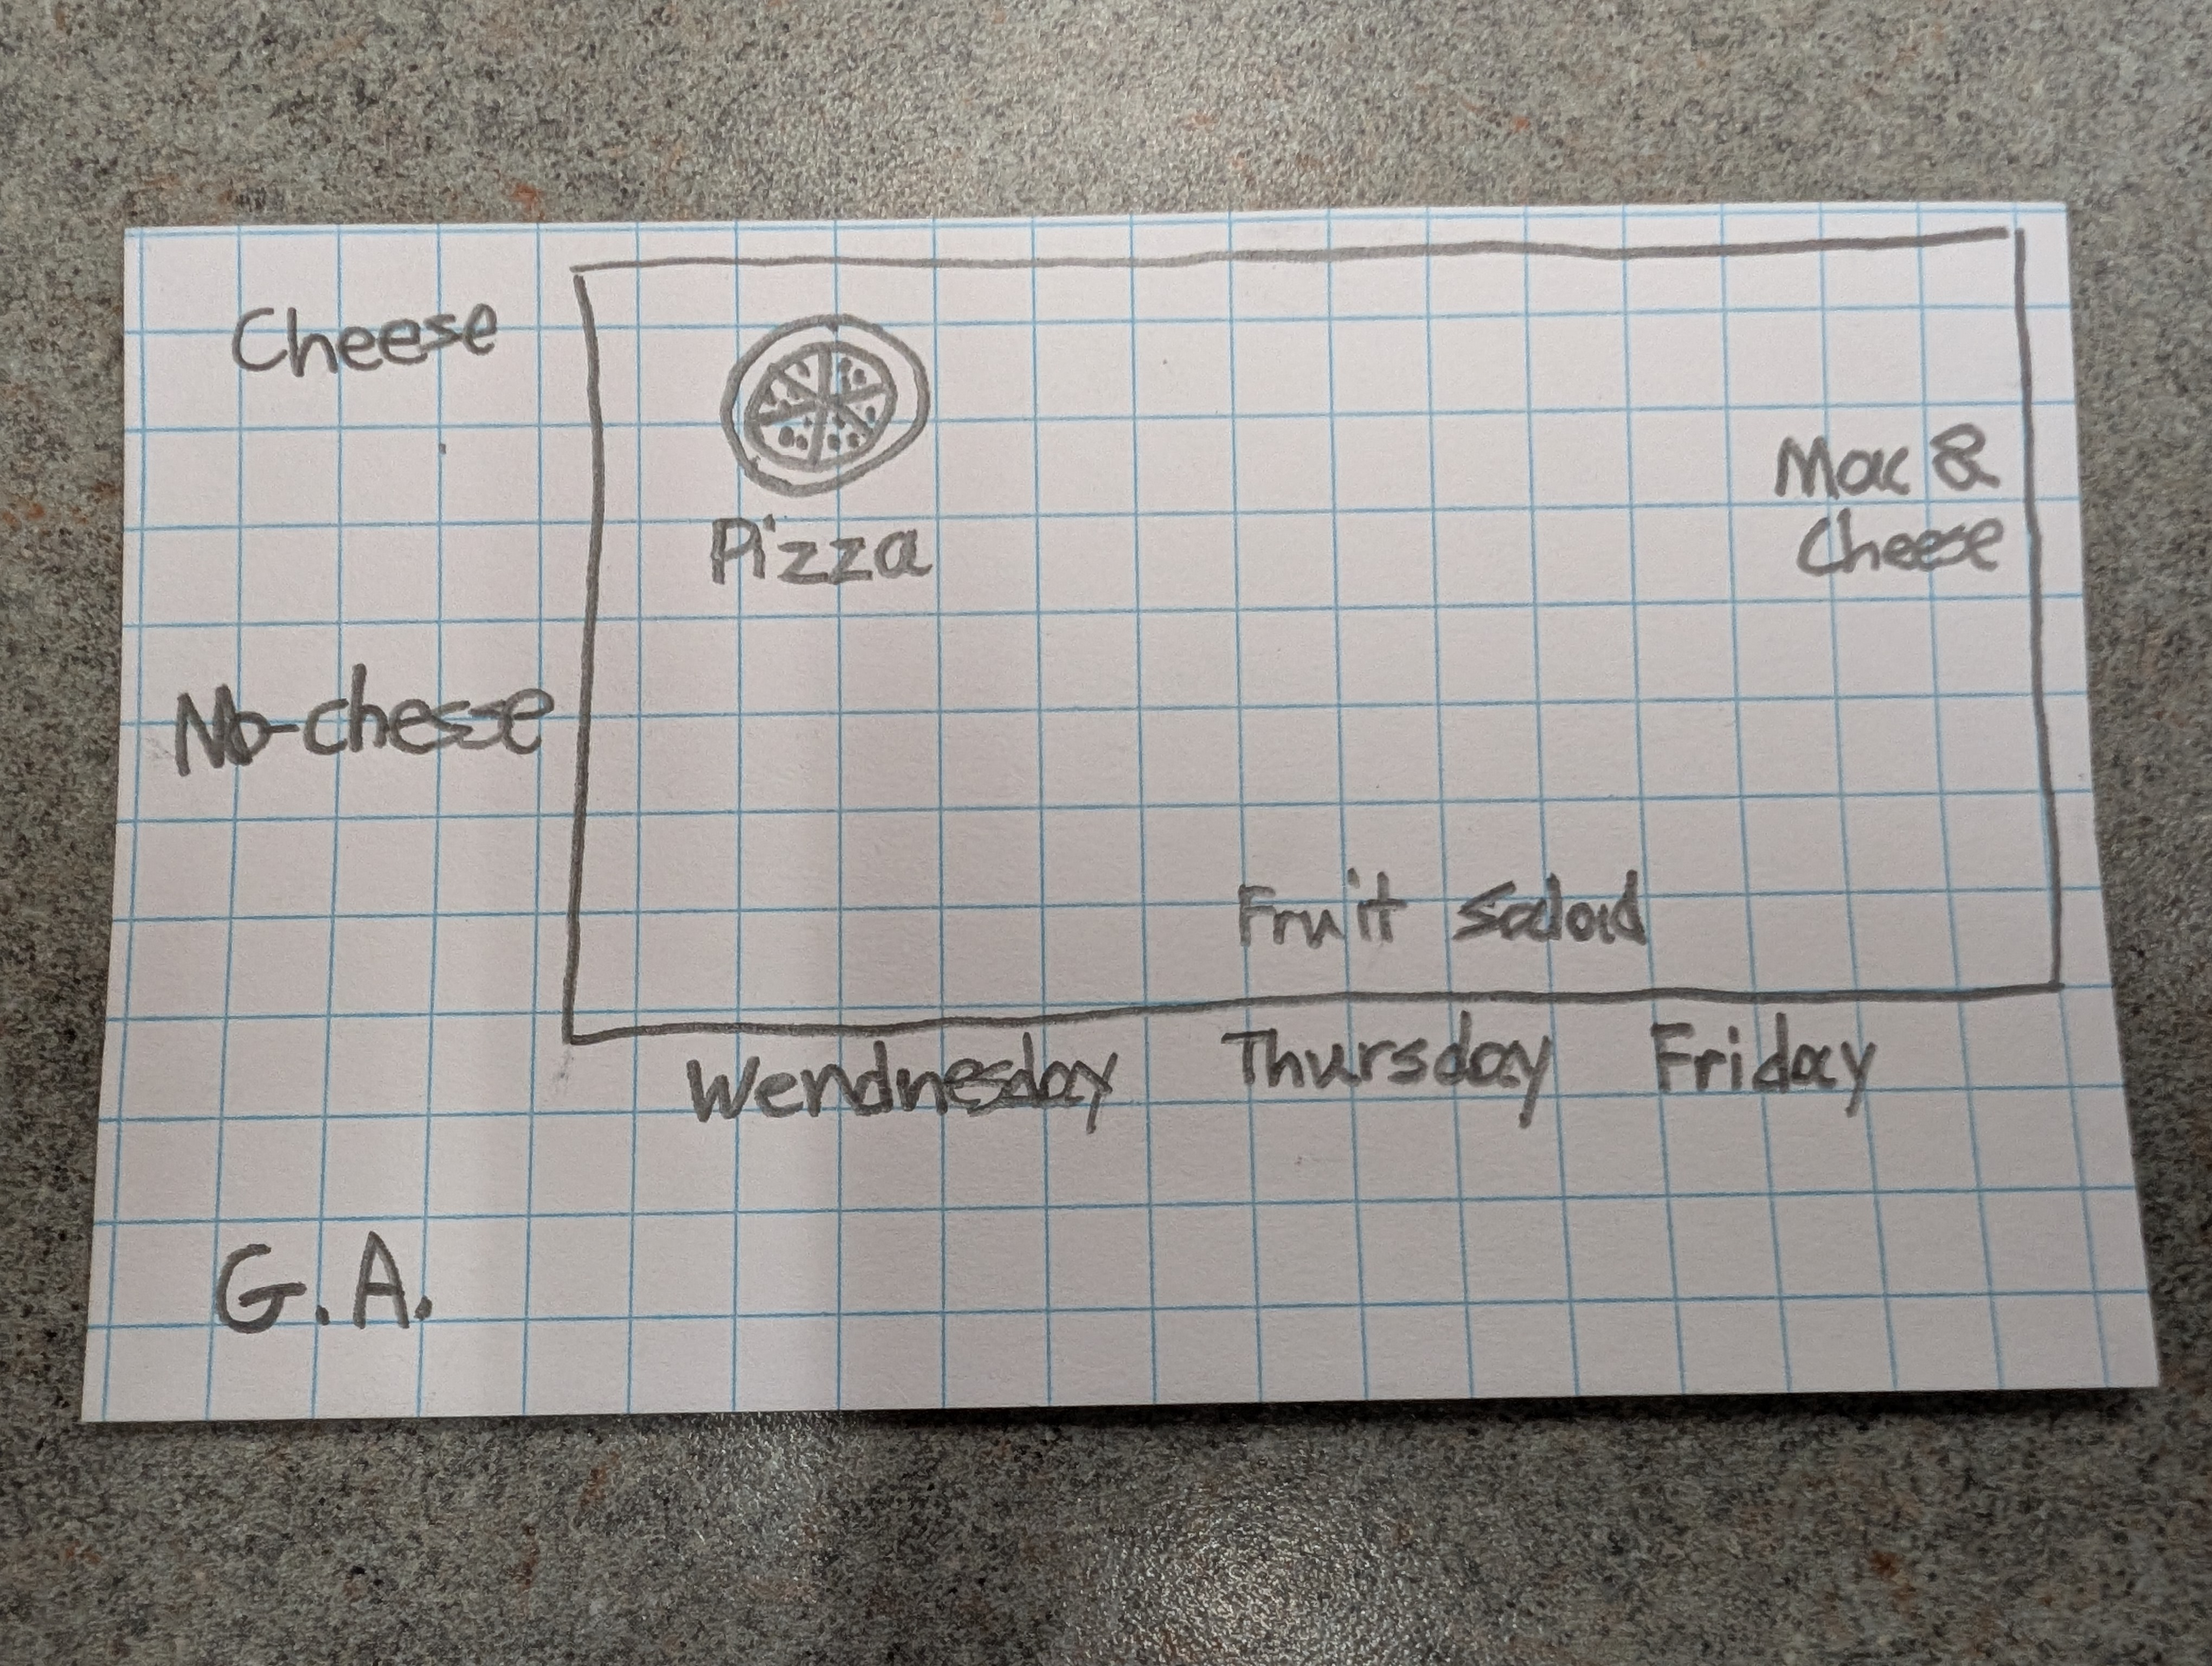 Cheese
Pizza
Mac &
Cheese
No-chesse
Fruit Salad
Wendnesday Thursday Friday
G.A.